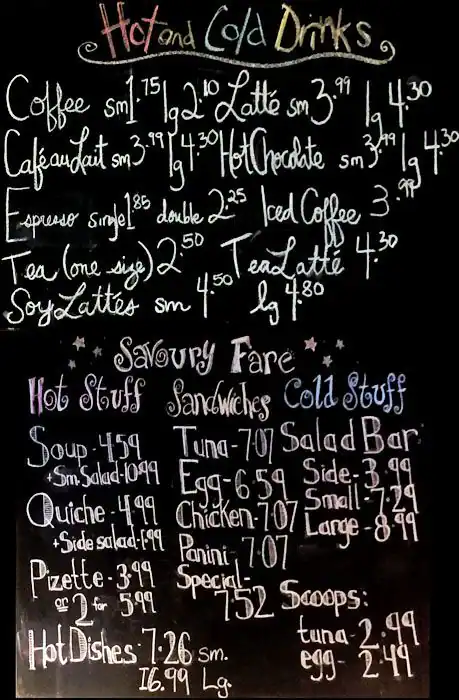 Hot and Cold Drinks
Coffee sm 1.75 lg 2.10 Latté sm 3.99 lg 4.30
Café au Lait sm 3.99 lg 4.30 Hot Chocolate sm 3.99 lg 4.30
Espresso single 1.85 double 2.25 Iced Coffee 3.99
Tea (one size) 2.50 Tea Latté 4.30
Soy Lattés sm 4.50 lg 4.80
Savoury Fare
Hot Stuff
Soup - 4.59
+ Sm. Salad - 10.99
Quiche - 4.99
+ Side salad - 1.99
Pizette - 3.99
or 2 for 5.99
Hot Dishes: 7.26 sm.
16.99 Lg.
Sandwiches
Tuna - 7.07
Egg - 6.59
Chicken - 7.07
Panini - 7.07
Special -
7.52
Cold Stuff
Salad Bar:
Side - 3.99
Small - 7.29
Large - 8.99
Scoops:
tuna - 2.99
egg - 2.49